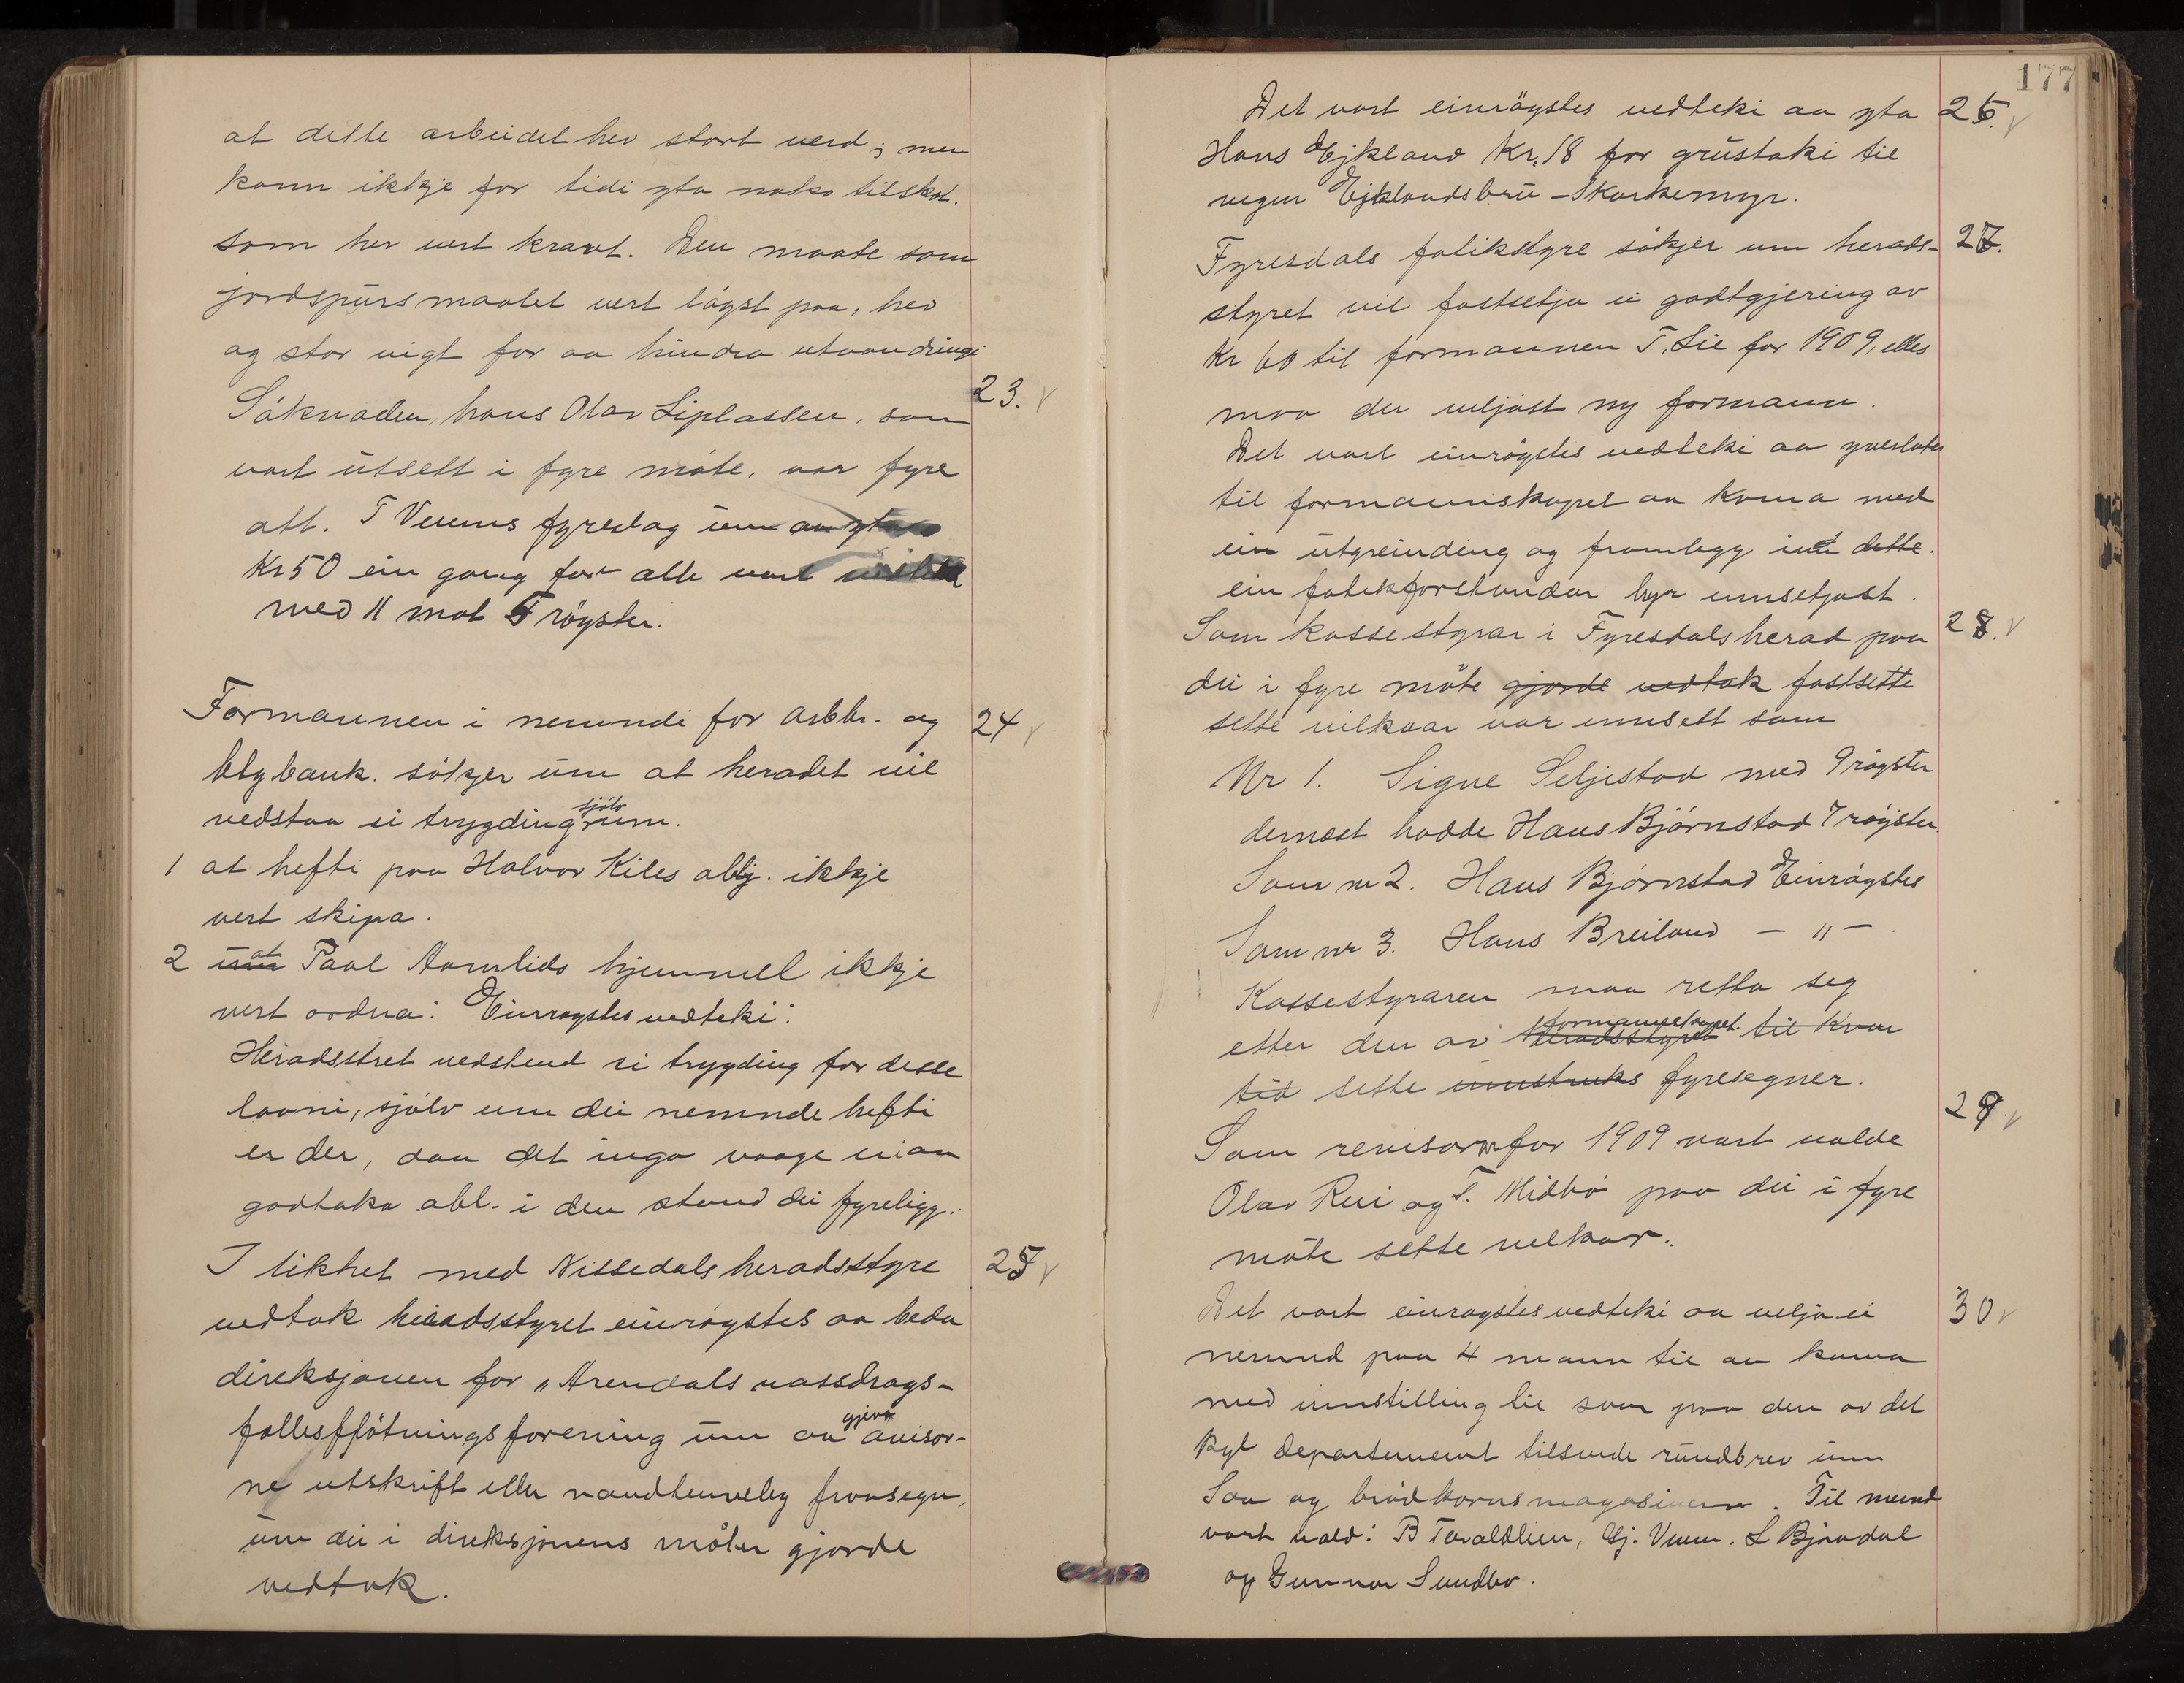 at dette arbeidet hev stort verd; men
kann ikkje for tidi yta noko tilskot.
som her vert kravt. Den maate som
jordspursmaalet vert löyst paa, hev
og stor vigt for aa hindra utvandringi
23.
Söknaden, hans Olav Liplassen, som
vart utsett i fyre möte, var fyre
att. T Veums fyreslag um aa yta
Kr 50 ein gong for alle vart vedteke
med 11 mot 5 röyster.
Formannen i nemndi for Arbbr. og 24
btgbank. sökjer um at heradet vil
vedstaa si trygding sjölv um.
1 at hefti paa Halvor Kiles oblig. ikkje
vert skipa.
2 um at Paal Aamlids hjemmel ikkje
vert ordna: Einröystes vedteki:
Heradsstret vedstend si trygding for desse
laani, sjölv um dei nemnde hefti
er der, daa det inga vaage er i aa
godtaka obl. i den stand dei fyreligg.
I likhet med Nissedals heradsstyre 25
vedtok heradsstyret einröystes aa beda
direksjonen for „Arendals vassdrags-
fellesflötningsforening um aa gjeva avisor-
ne utskrift eller vaudtenveleg fraasegn,
um dei i direksjonens möter gjorde
vedtok.
177
Det vart einröystes vedteki aa yta 26.
Hans Ejkland Kr. 18 for grustaki til
vegen Ejklandsbru - Skarkemyr.
Fyresdals folikstyre sökjer um herads- 27.
styret vil fastsetja ei godtgjering av
Kr 60 til formannen T. Lie for 1909, elles
maa der veljast ny formann.
Det vart einröystes vedteki aa yverlata
til formannskapet aa koma med
ein utgreinding og framlegg um dette.
ein folikforstandar byr innsetjast.
Som kassestyrar i Fyresdals herad paa 28.
dei i fyre möte gjorde vedtak fastsette
sette vilkaar var innsett som
Nr 1. Signe Seljestad med 9 röyster
dernæst hadde Hans Björnstad 7 röyster.
Som nr 2. Hans Björnstad Einröystes
Som nr 3. Hans Breiland — " —
Kassestyraren maa retta seg
etter den av heradsstyret formannskapet. til kvar
tid sette innstruks fyresegner.
29.
Som revisorar for 1909 vart valde
Olav Rui og T. Midbö paa dei i fyre
möte sette velkaar.
Det vart einröystes vedteki aa velja ei 30
nemnd paa 4 mann til aa koma
med innstilling til svar paa den av det
Kgl departement tilsende rundbrev um
Saa og brödkornsmagasinerne. Til nemnd
vart vald: B Tovaldlien, Gj. Veum. L Björndal
og Gunnar Sundbö.